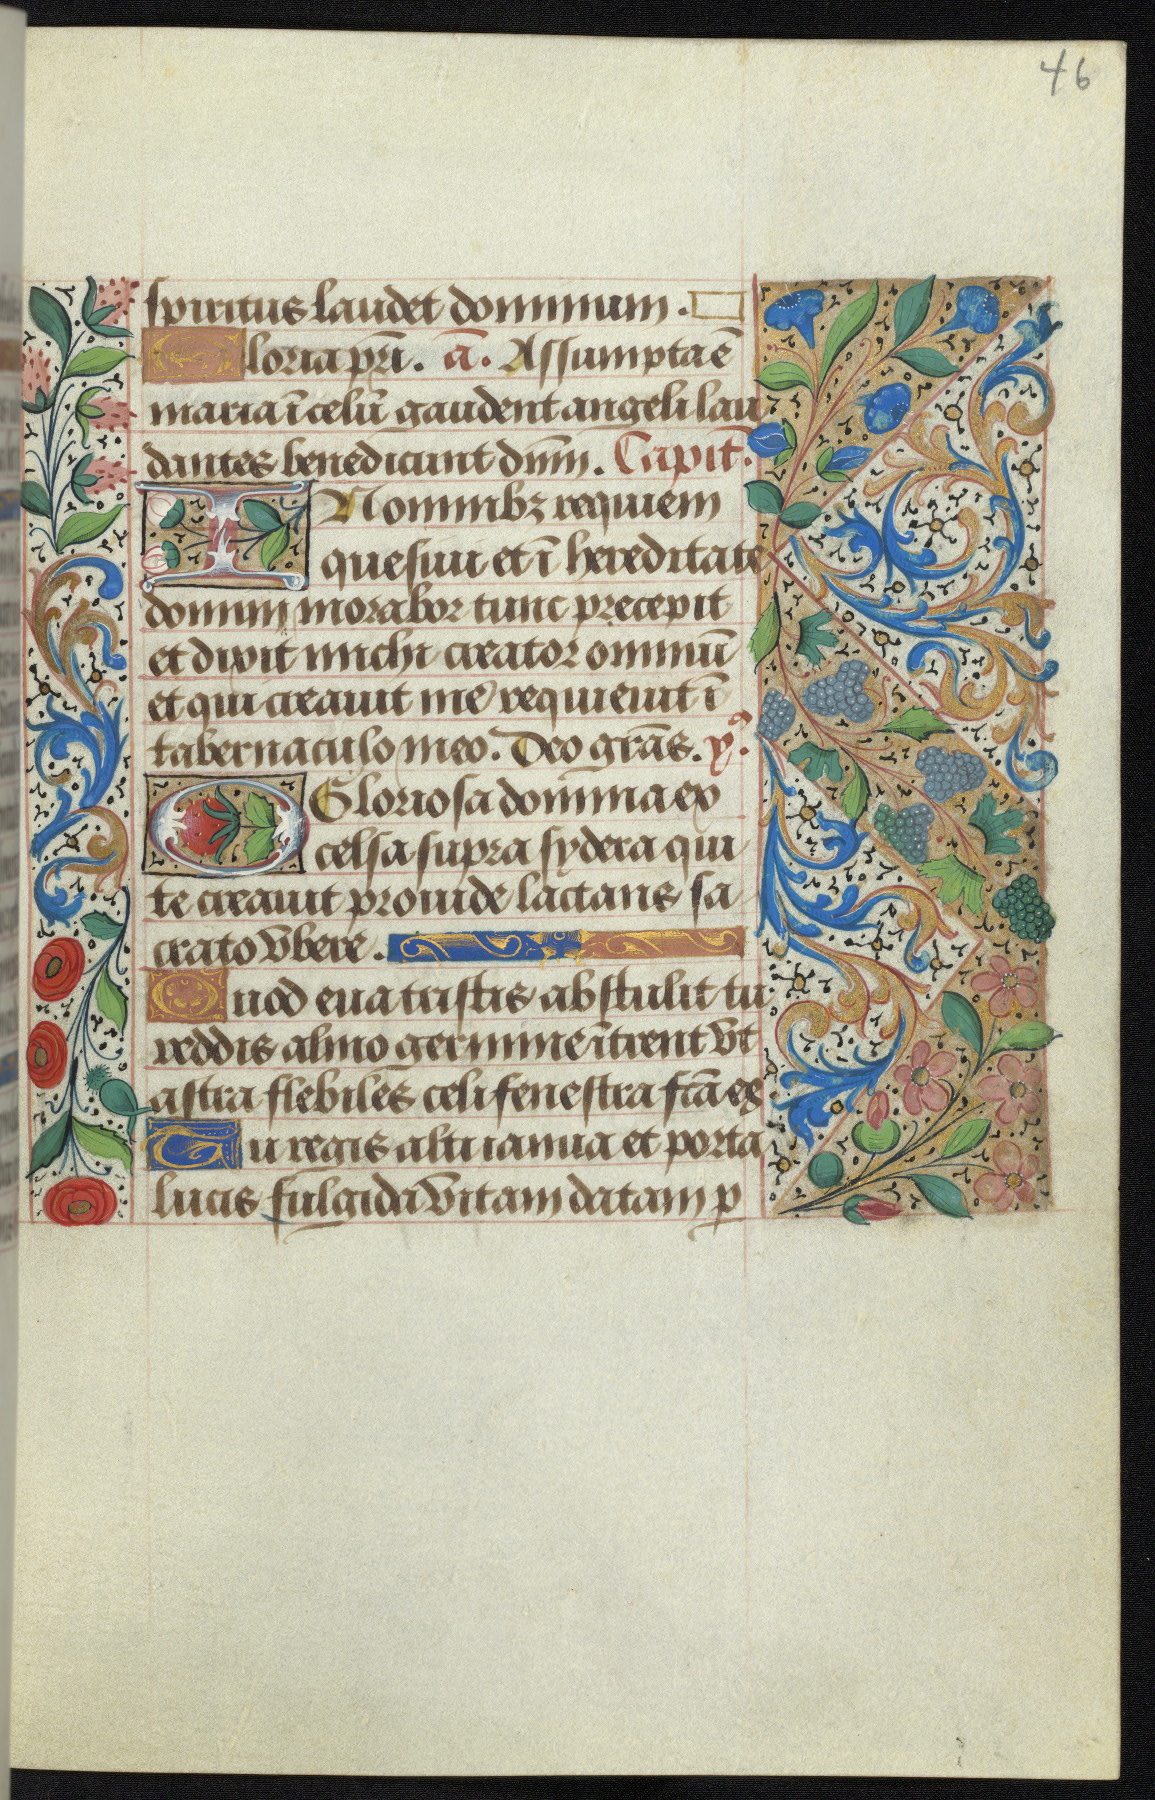 46
spiritus laudet dominum.
Gloria pr̄i. a̅. Assumpta ē
maria ī celū gaudent angeli lau
dantes benedicunt dn̄m. Capit̄.
IN omnibꝫ requiem
quesiui et ī hereditate
domini morabor tunc precepit
et dixit michi creator omniū
et qui creauit me requieuit ī
tabernaculo meo. Deo grās. y̾.
O Gloriosa domina ex
celsa supra sydera qui
te creauit prouide lactans sa
crato vbere.
Quod eua tristis abstulit tu
reddis almo germine ītrent vt
astra flebiles celi fenestra fc̄a es
Tu regis alti ianua et porta
lucis fulgida vitam datam ꝑ